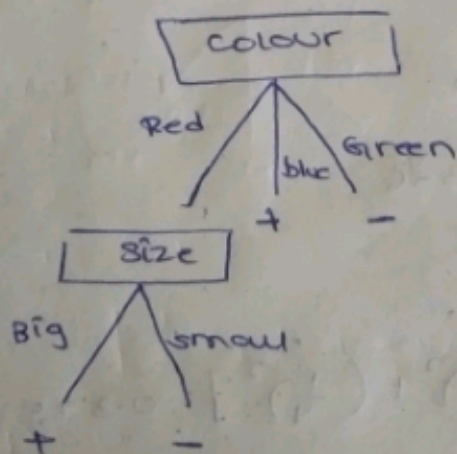 Colour
Red
blue
Green
+
-
Size
Big
small
+
-